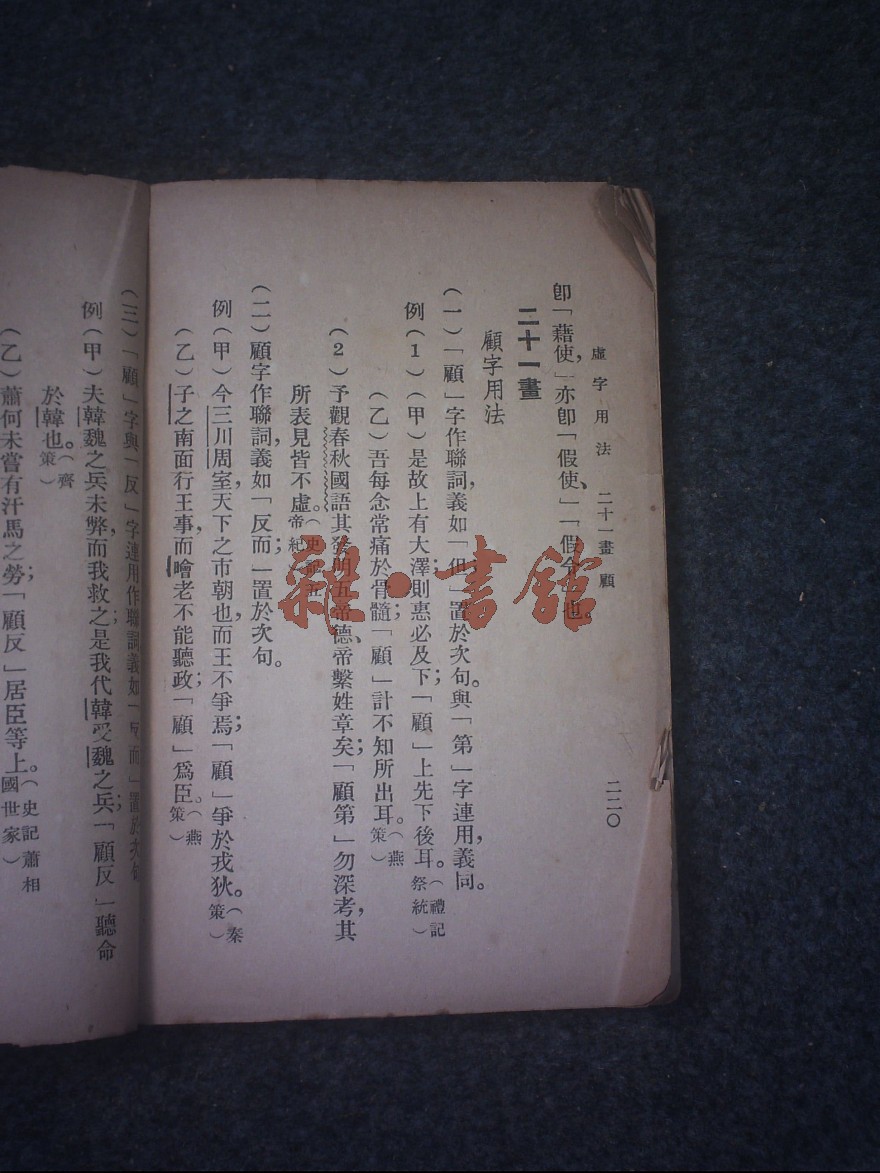 虛字用法 二十一畫 顧 二二〇
卽「藉使」，亦卽「假使」、「假令」也。
二十一畫
顧字用法
（一）「顧」字作聯詞，義如「但」，置於次句。與「第」字連用，義同。
例（1）（甲）是故上有大澤，則惠必及下；「顧」上先下後耳。（禮記祭統）
（乙）吾每念常痛於骨髓；「顧」計不知所出耳。（燕策）
（2）予觀春秋國語，其發明五帝德、帝繫姓章矣；「顧第」勿深考，其
所表見皆不虛。（史記五帝紀）
（二）顧字作聯詞，義如「反而」，置於次句。
例（甲）今三川周室，天下之市朝也，而王不爭焉；「顧」爭於戎狄。（秦策）
（乙）子之南面行王事，而噲老不能聽政；「顧」爲臣。（燕策）
（三）「顧」字與「反」字連用作聯詞，義如「反而」，置於次句
例（甲）夫韓魏之兵未弊，而我救之；是我代韓受魏之兵；「顧反」聽命
於韓也。（齊策）
（乙）蕭何未嘗有汗馬之勞；「顧反」居臣等上。（史記蕭相國世家）
雜·書館